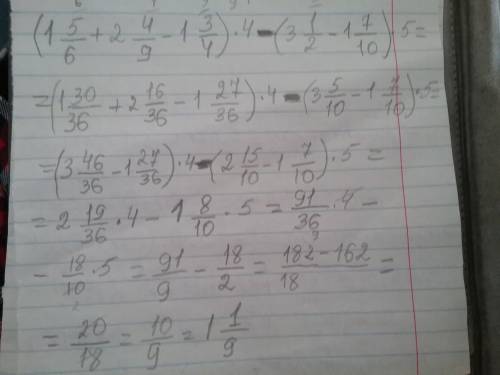 (1 5/6 + 2 4/9 - 1 3/4) · 4 - (3 1/2 - 1 7/10) · 5 =
= (1 30/36 + 2 16/36 - 1 27/36) · 4 - (3 5/10 - 1 7/10) · 5 =
= (3 46/36 - 1 27/36) · 4 - (2 15/10 - 1 7/10) · 5 =
= 2 19/36 · 4 - 1 8/10 · 5 = 91/36 · 4 -
- 18/10 · 5 = 91/9 - 18/2 = 182-162/18 =
= 20/18 = 10/9 = 1 1/9